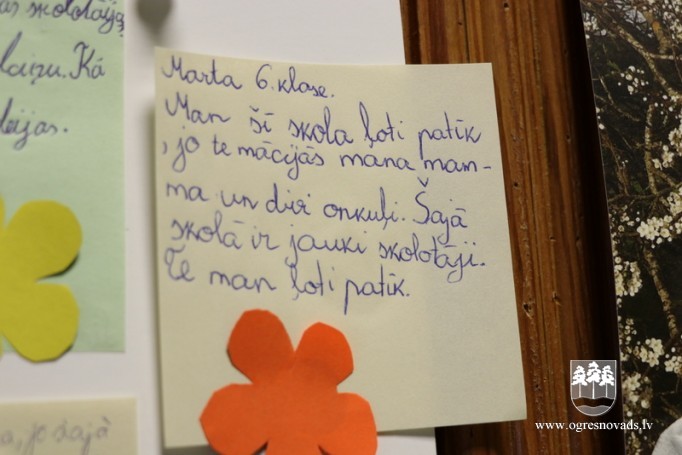 skolotāja
laiņu. Kā
Marta 6. klase.
Man šī skola ļoti patīk
, jo te mācījās mana mam-
ma un divi onkuļi. Šajā
skolā ir jauki skolotāji.
Te man ļoti patīk.
, jo šajā
www.ogresnovads.lv